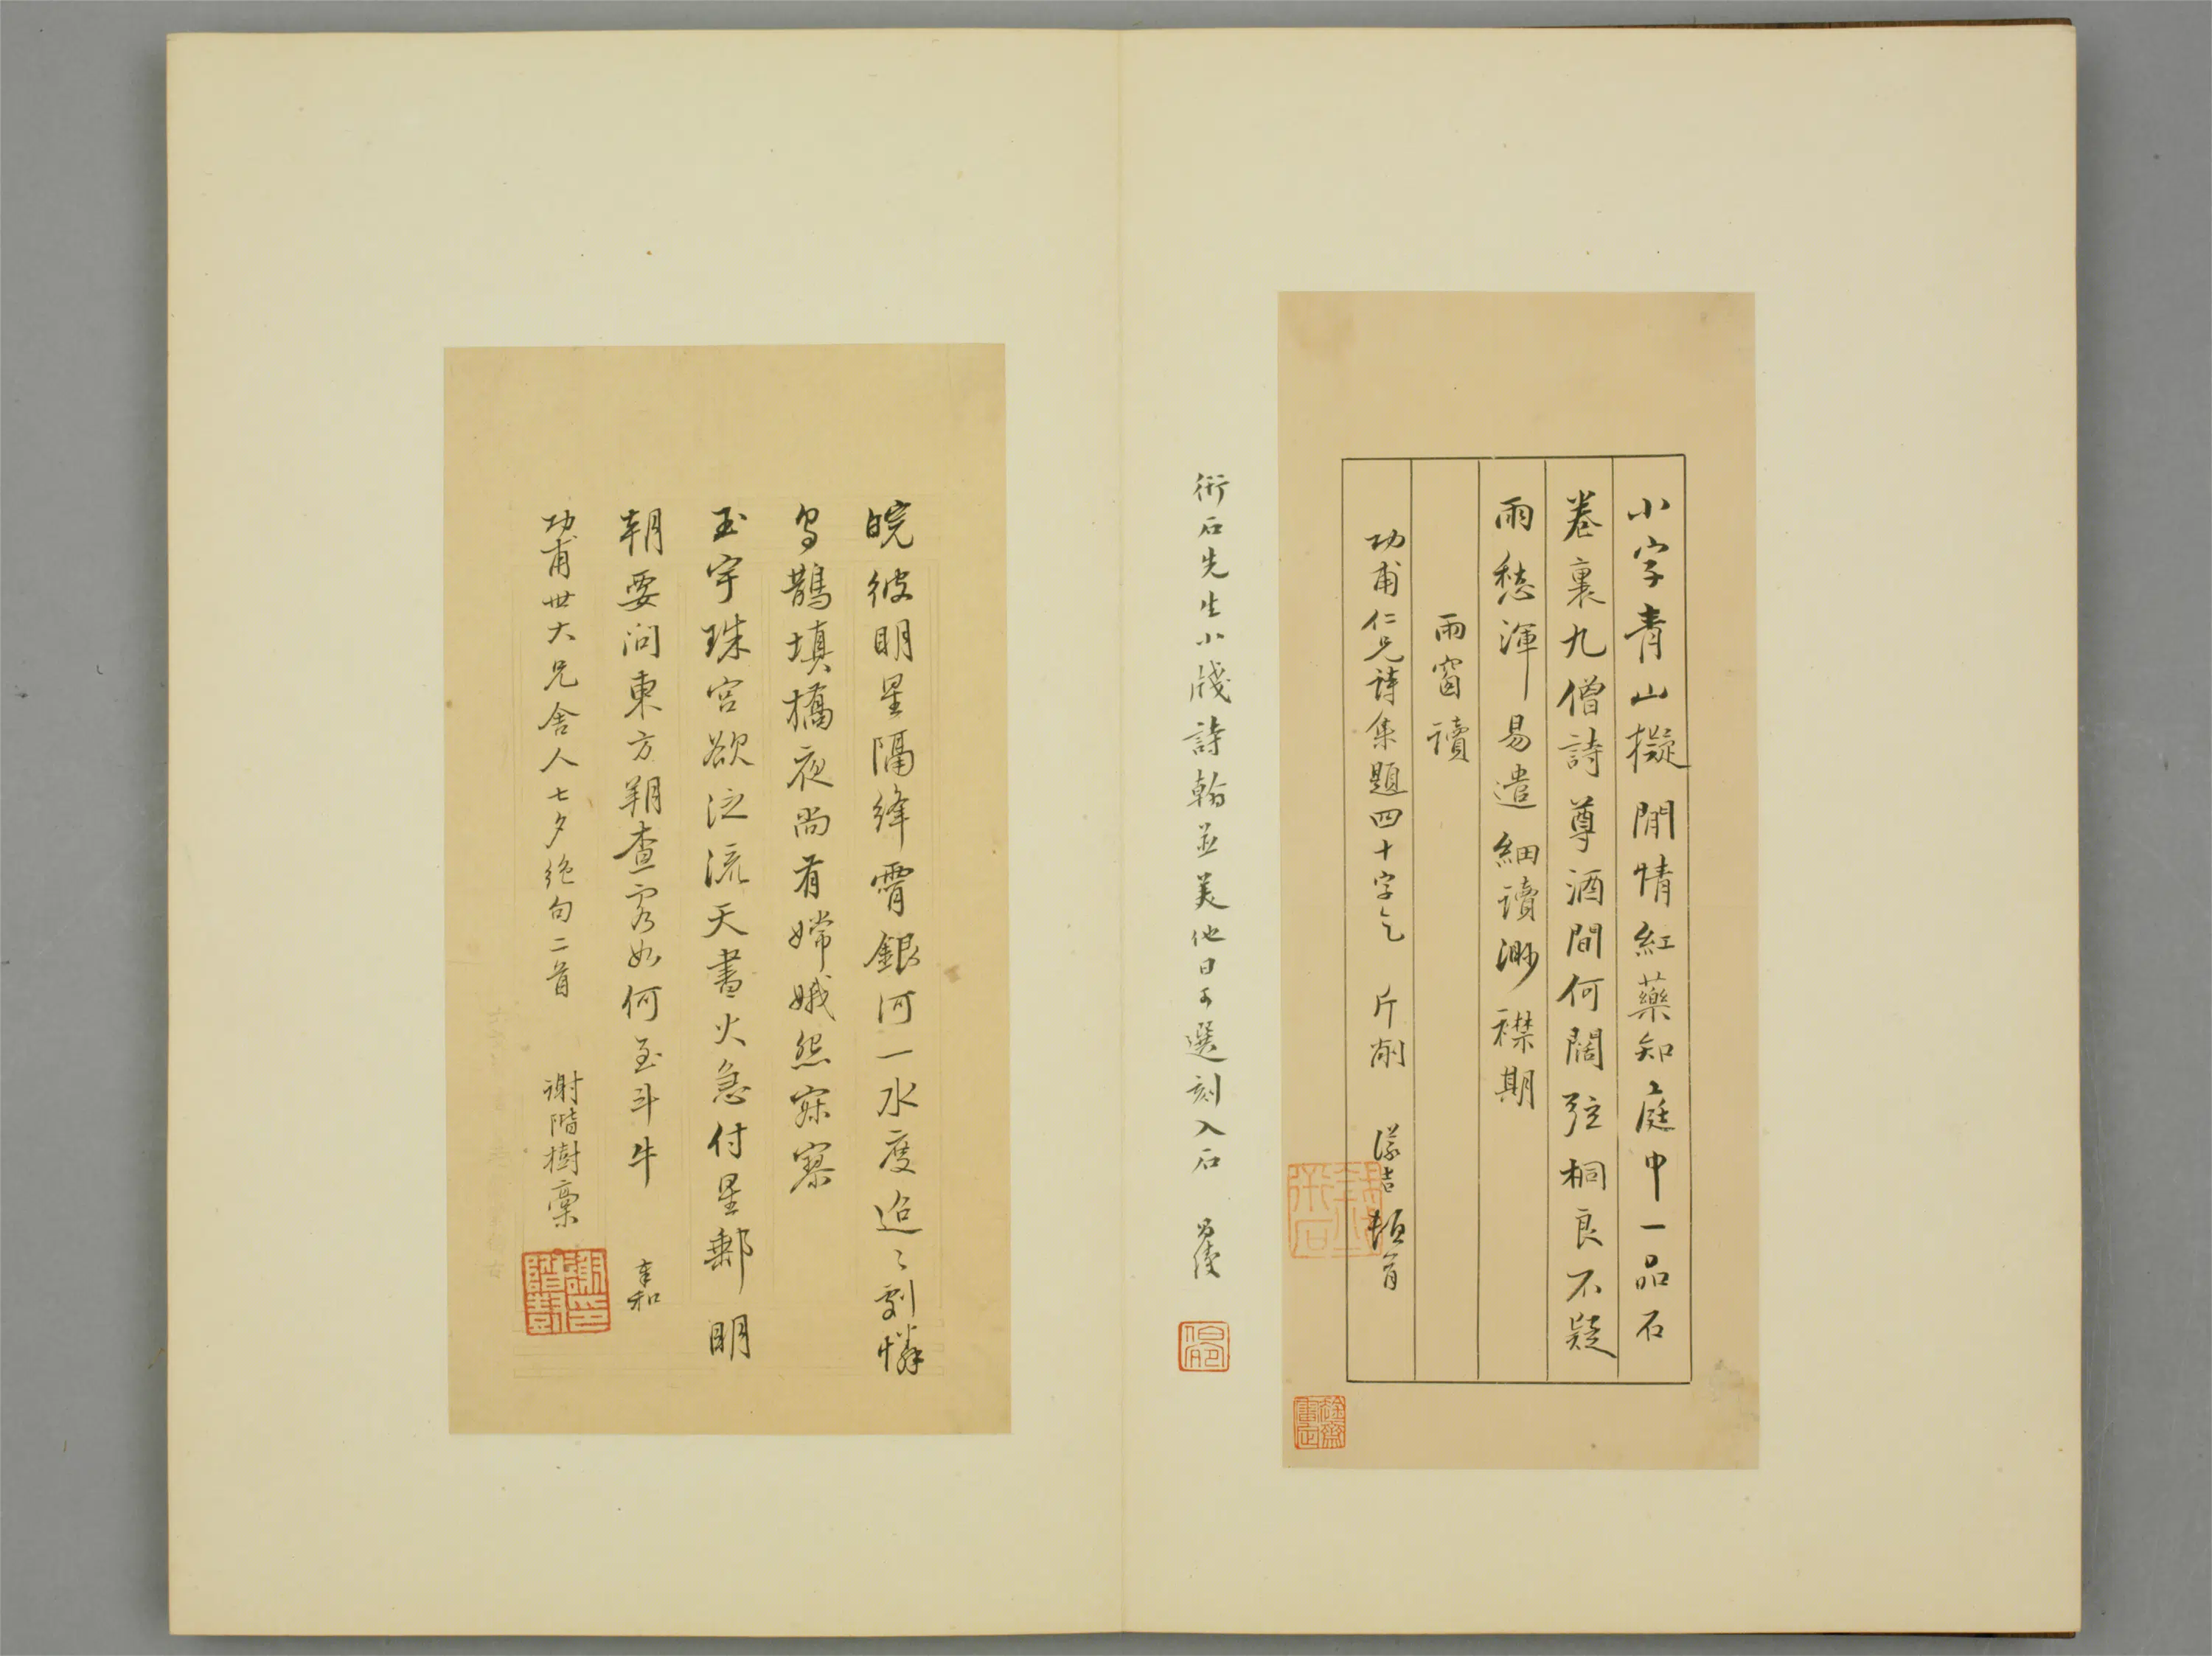 小字青山擬閒情紅藥知庭中一品石
卷裏九僧詩尊酒間何闊弦桐良不疑
雨愁渾易遣細讀渺襟期
雨窗讀
功甫仁兄詩集題四十字乞 斤削 儀吉頓首
衎石先生小牋詩翰並美他日可選刻入石
皖彼明星隔絳霄銀河一水度迢〻劇憐
烏鵲填橋夜尚有嫦娥怨寂寥
玉宇珠宮欲泛流天書火急付星郵明
朝要問東方朔查客如何至斗牛 奉和
功甫世大兄舍人七夕絕句二首 謝階樹稾